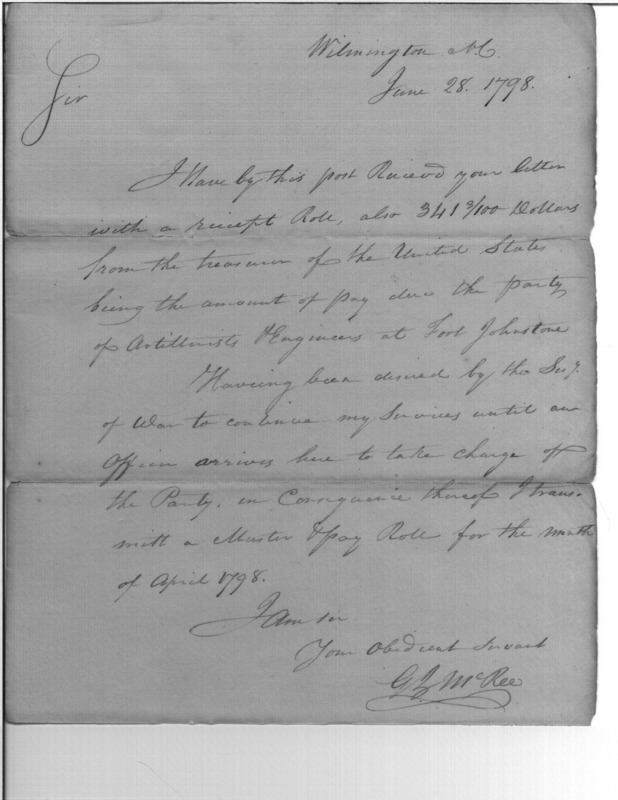 Wilmington NC.
June 28. 1798.
Sir
I Have by this post Recievd your letter
with a reciept Roll, also 341 3/100 Dollars
from the treasurer of the United States
being the amount of pay due the party
of Artillerists & Engineers at Fort Johnstone
Haveing been desired by the Secy.
of War to continue my Services until an
Officer arrives here to take charge of
the Party, in Consequence thereof I trans-
mitt a Muster & pay Roll for the month
of April 1798.
I Am sir
Your Obedient Servant
G J McRee